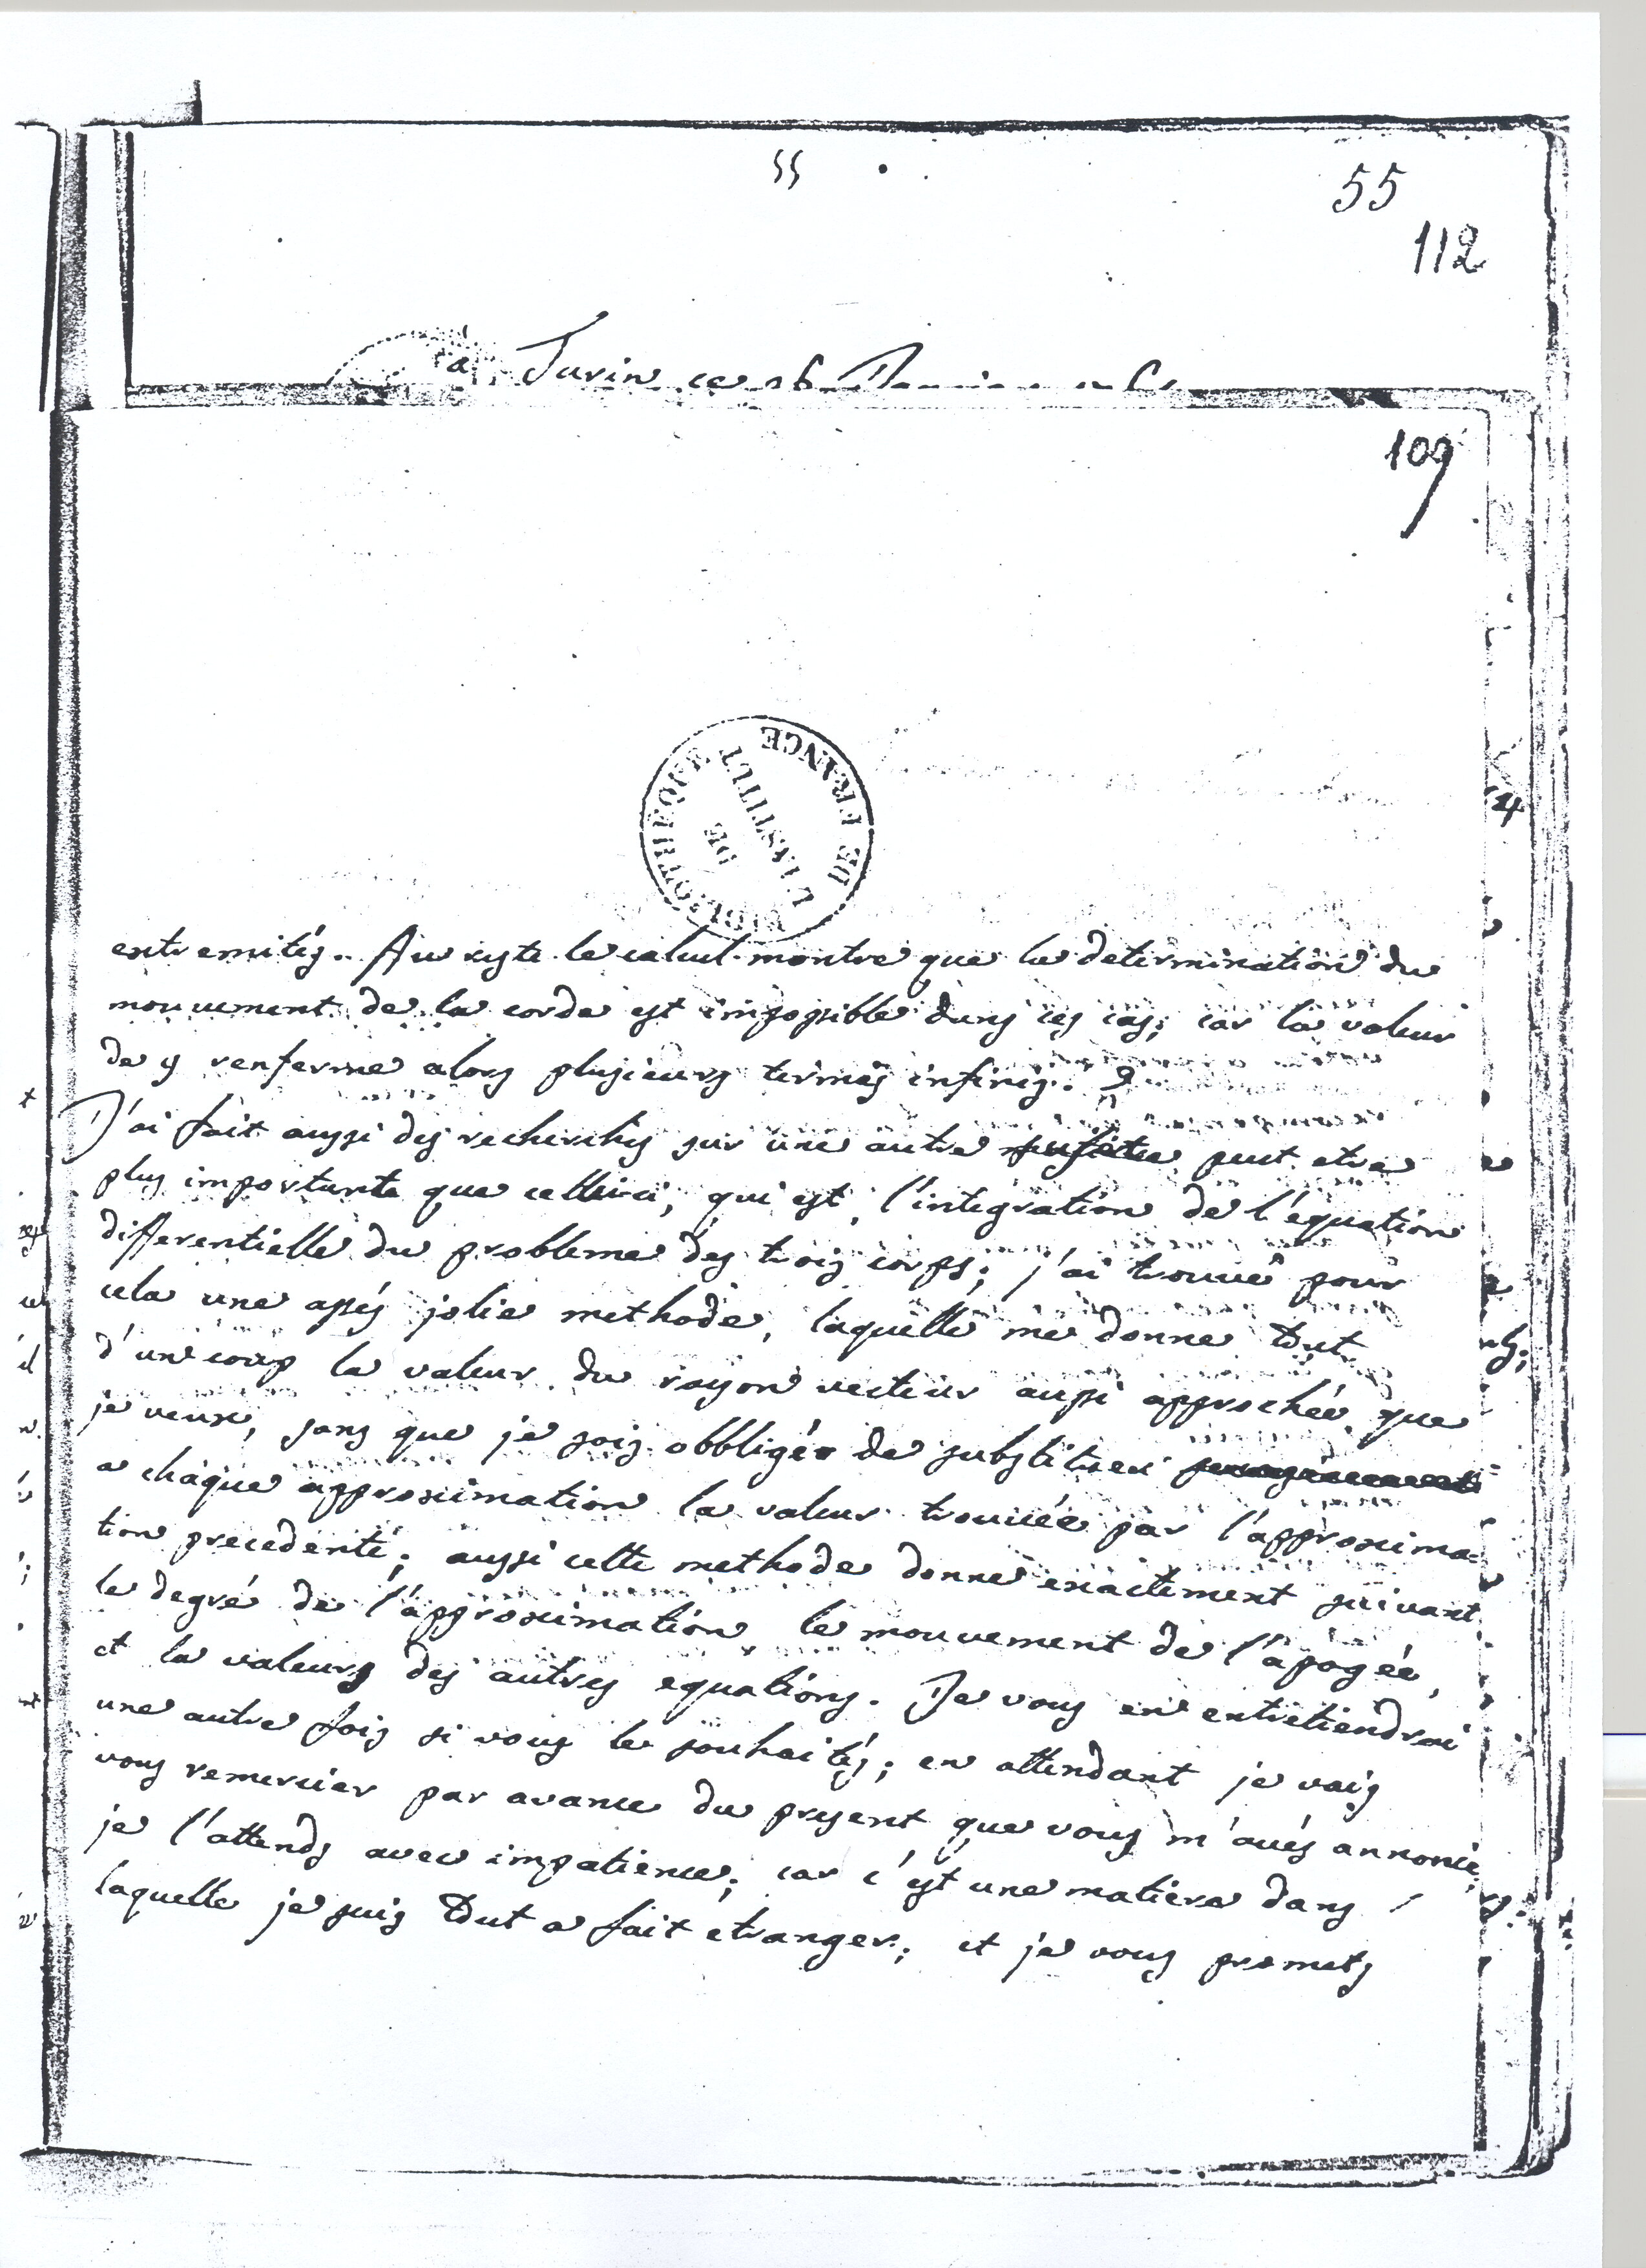 55
55
112
a Turin ce 26
109
BIBLIOTHEQUE DE L'INSTITUT DE FRANCE
extremités. Au reste le calcul montre que la determination du
mouvement de la corde est impossible dans ces cas; car la valeur
de y renferme alors plusieurs termes infinis.
J'ai fait aussi des recherches sur une autre peut etre
plus importante que celle-ci, qui est l'integration de l'equation
differentielle du probleme des trois corps; j'ai trouvé pour
cela une assés jolie methode, laquelle me donne tout
d'un coup la valeur du rayon vecteur aussi approchée que
je veux, sans que je sois obbligé de substituer
a chaque approximation la valeur trouvée par l'approxima-
tion precedente; aussi cette methode donne exactement suivant
le degré de l'approximation le mouvement de l'apogée,
et la valeurs des autres equations. Je vous en entretiendrai
une autre fois si vous le souhaités; en attendant je vais
vous remercier par avance du present que vous m'avés annoncé;
je l'attends avec impatience; car c'est une matiere dans
laquelle je suis tout a fait etranger; et je vous promets